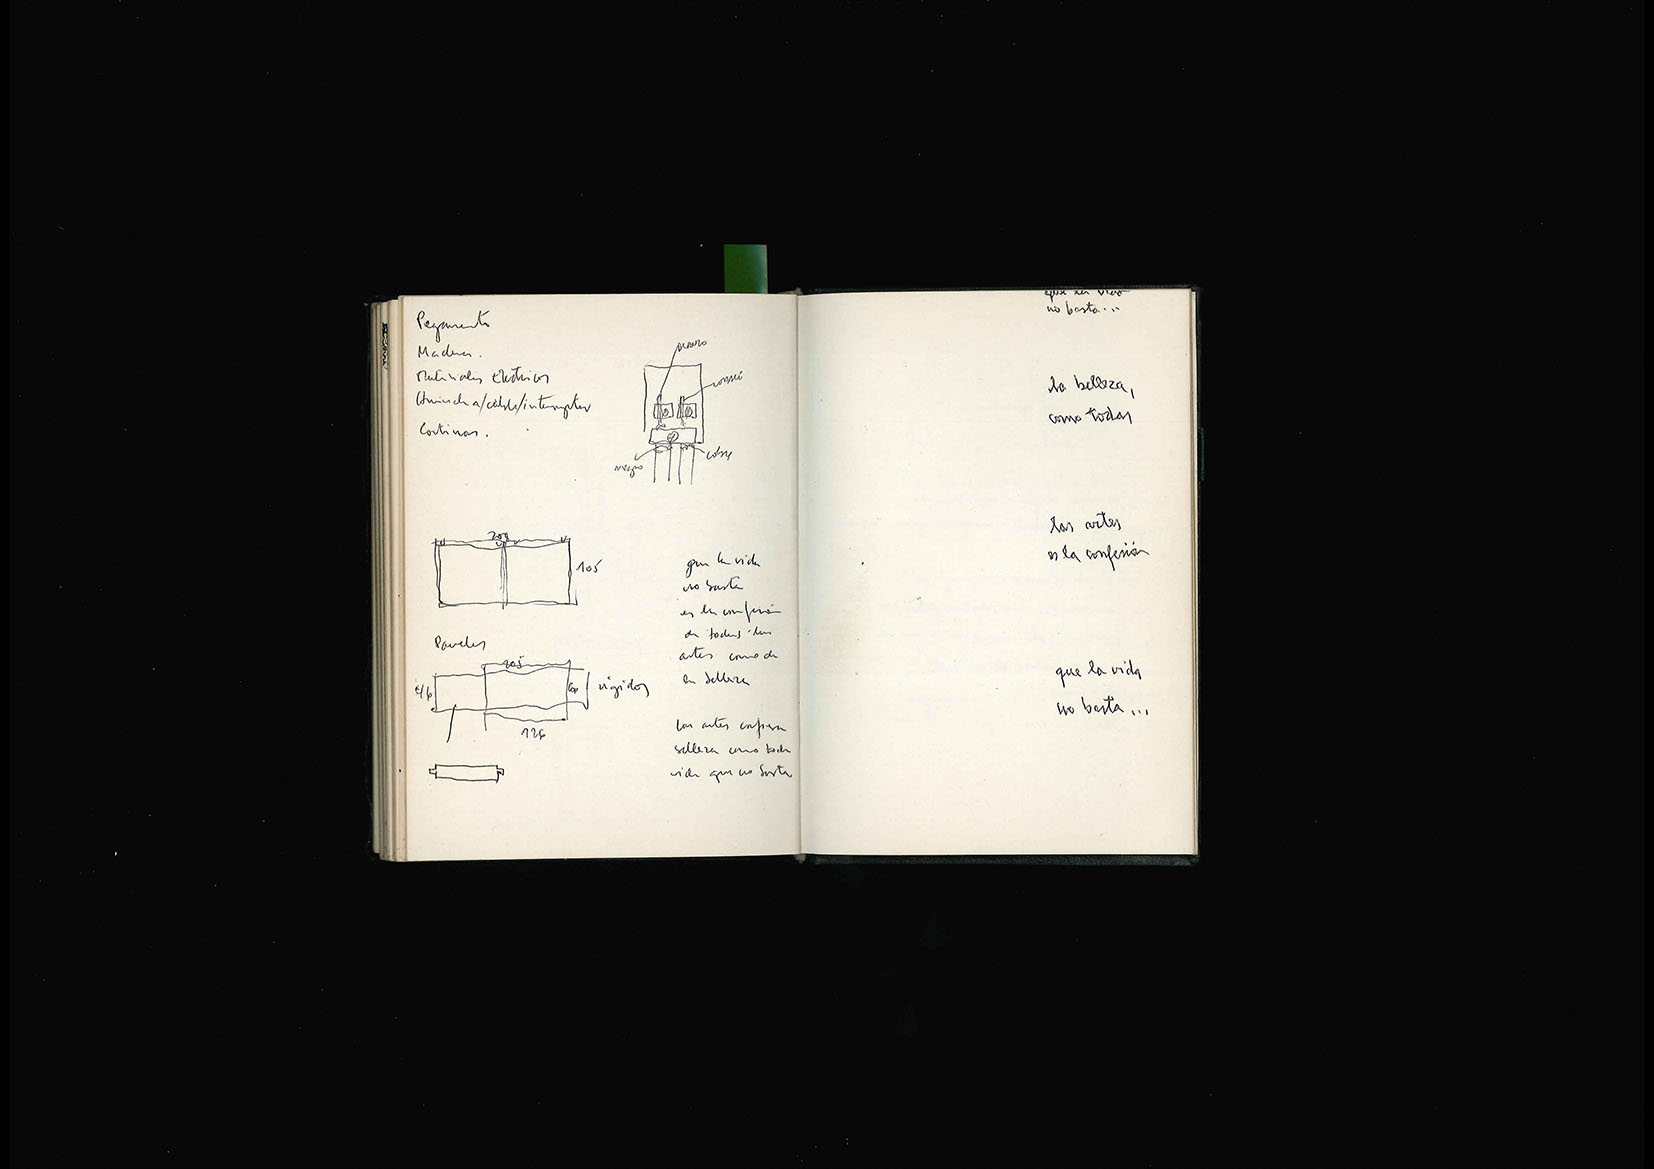 Pegamento
Madera.
Materiales Electricos
/cable/interruptor
Cortinas.
negro
cable
200
105
Paneles
105
46
60
rigidos
126
que la vida
no basta
es la confesión
de todas las
artes como de
la belleza
las artes confiesan
belleza como toda
vida que no basta
que la vida
no basta...
la belleza,
como todas
las artes
es la confesión
que la vida
no basta ...